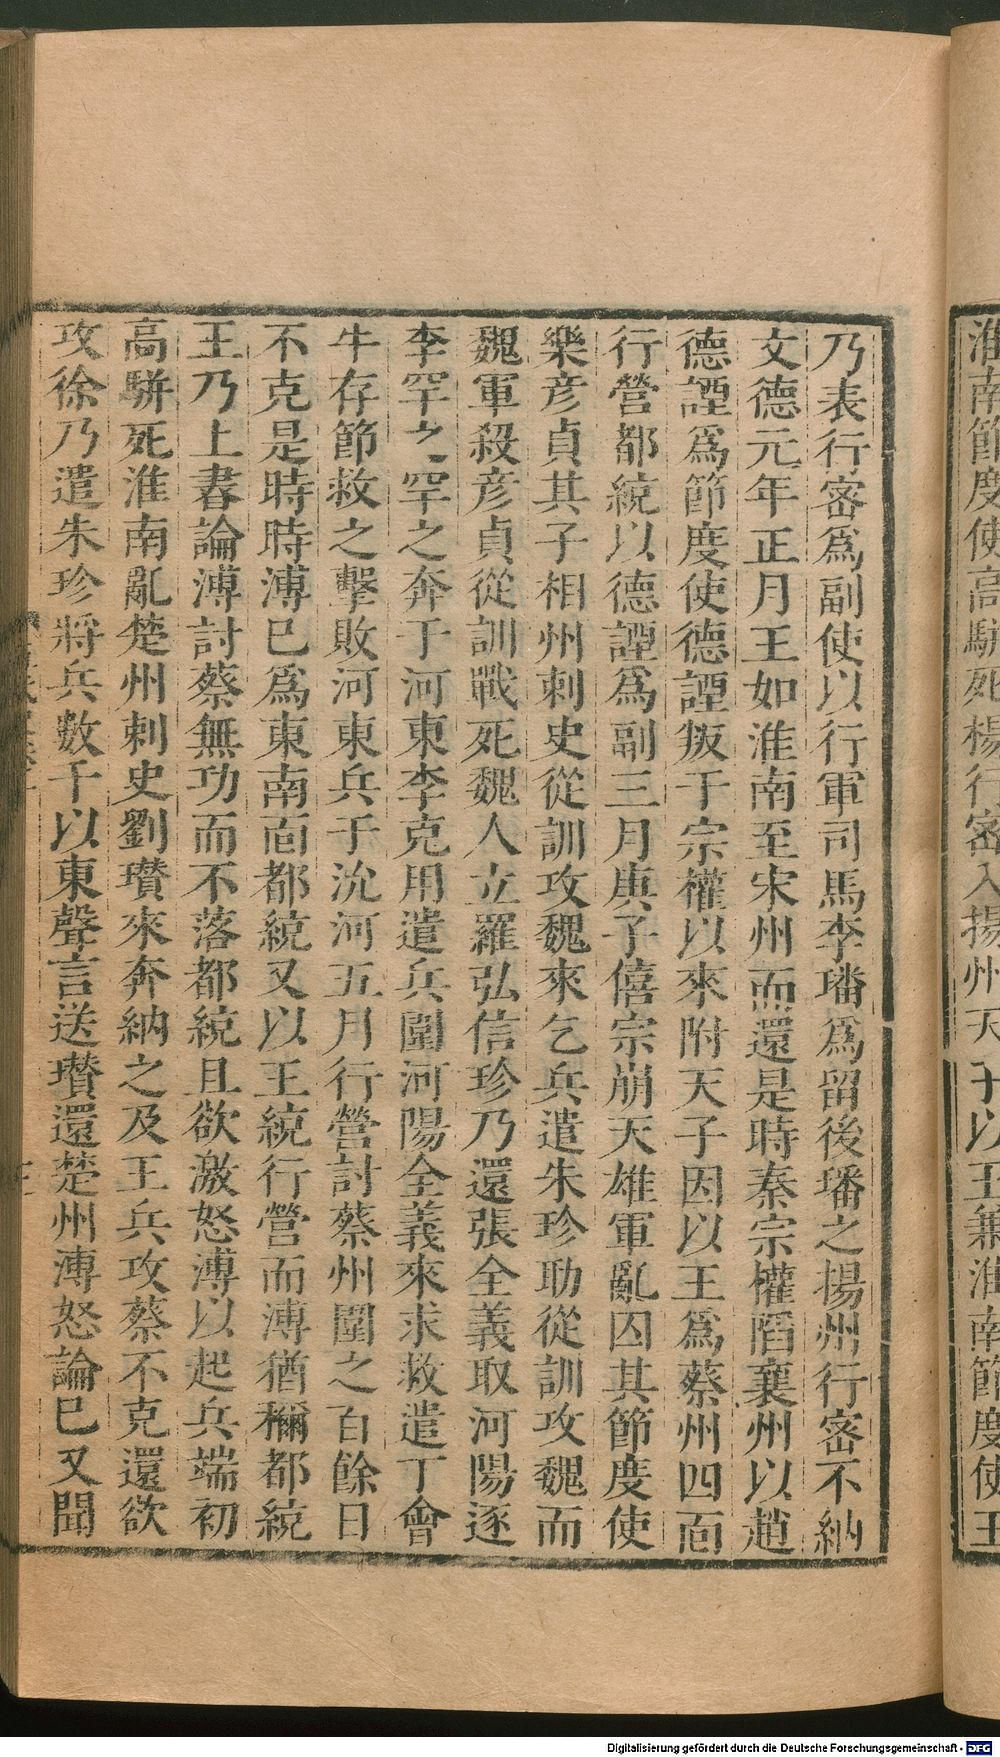 淮南節度使高駢死楊行密入揚州天子以王兼淮南節度使王
乃表行密爲副使以行軍司馬李璠爲留後璠之揚州行密不納
文德元年正月王如淮南至宋州而還是時秦宗權陷襄州以趙
德諲爲節度使德諲叛于宗權以來附天子因以王爲蔡州四面
行營都統以德諲爲副三月庚子僖宗崩天雄軍亂囚其節度使
樂彥貞其子相州刺史從訓攻魏來乞兵遣朱珍助從訓攻魏而
魏軍殺彥貞從訓戰死魏人立羅弘信珍乃還張全義取河陽逐
李罕之罕之奔于河東李克用遣兵圍河陽全義來求救遣丁會
牛存節救之擊敗河東兵于沇河五月行營討蔡州圍之百餘日
不克是時時溥已爲東南面都統又以王統行營而溥猶稱都統
王乃上書論溥討蔡無功而不落都統且欲激怒溥以起兵端初
高駢死淮南亂楚州刺史劉瓚來奔納之及王兵攻蔡不克還欲
攻徐乃遣朱珍將兵數千以東聲言送瓚還楚州溥怒論已又聞
Digitalisierung gefördert durch die Deutsche Forschungsgemeinschaft - DFG